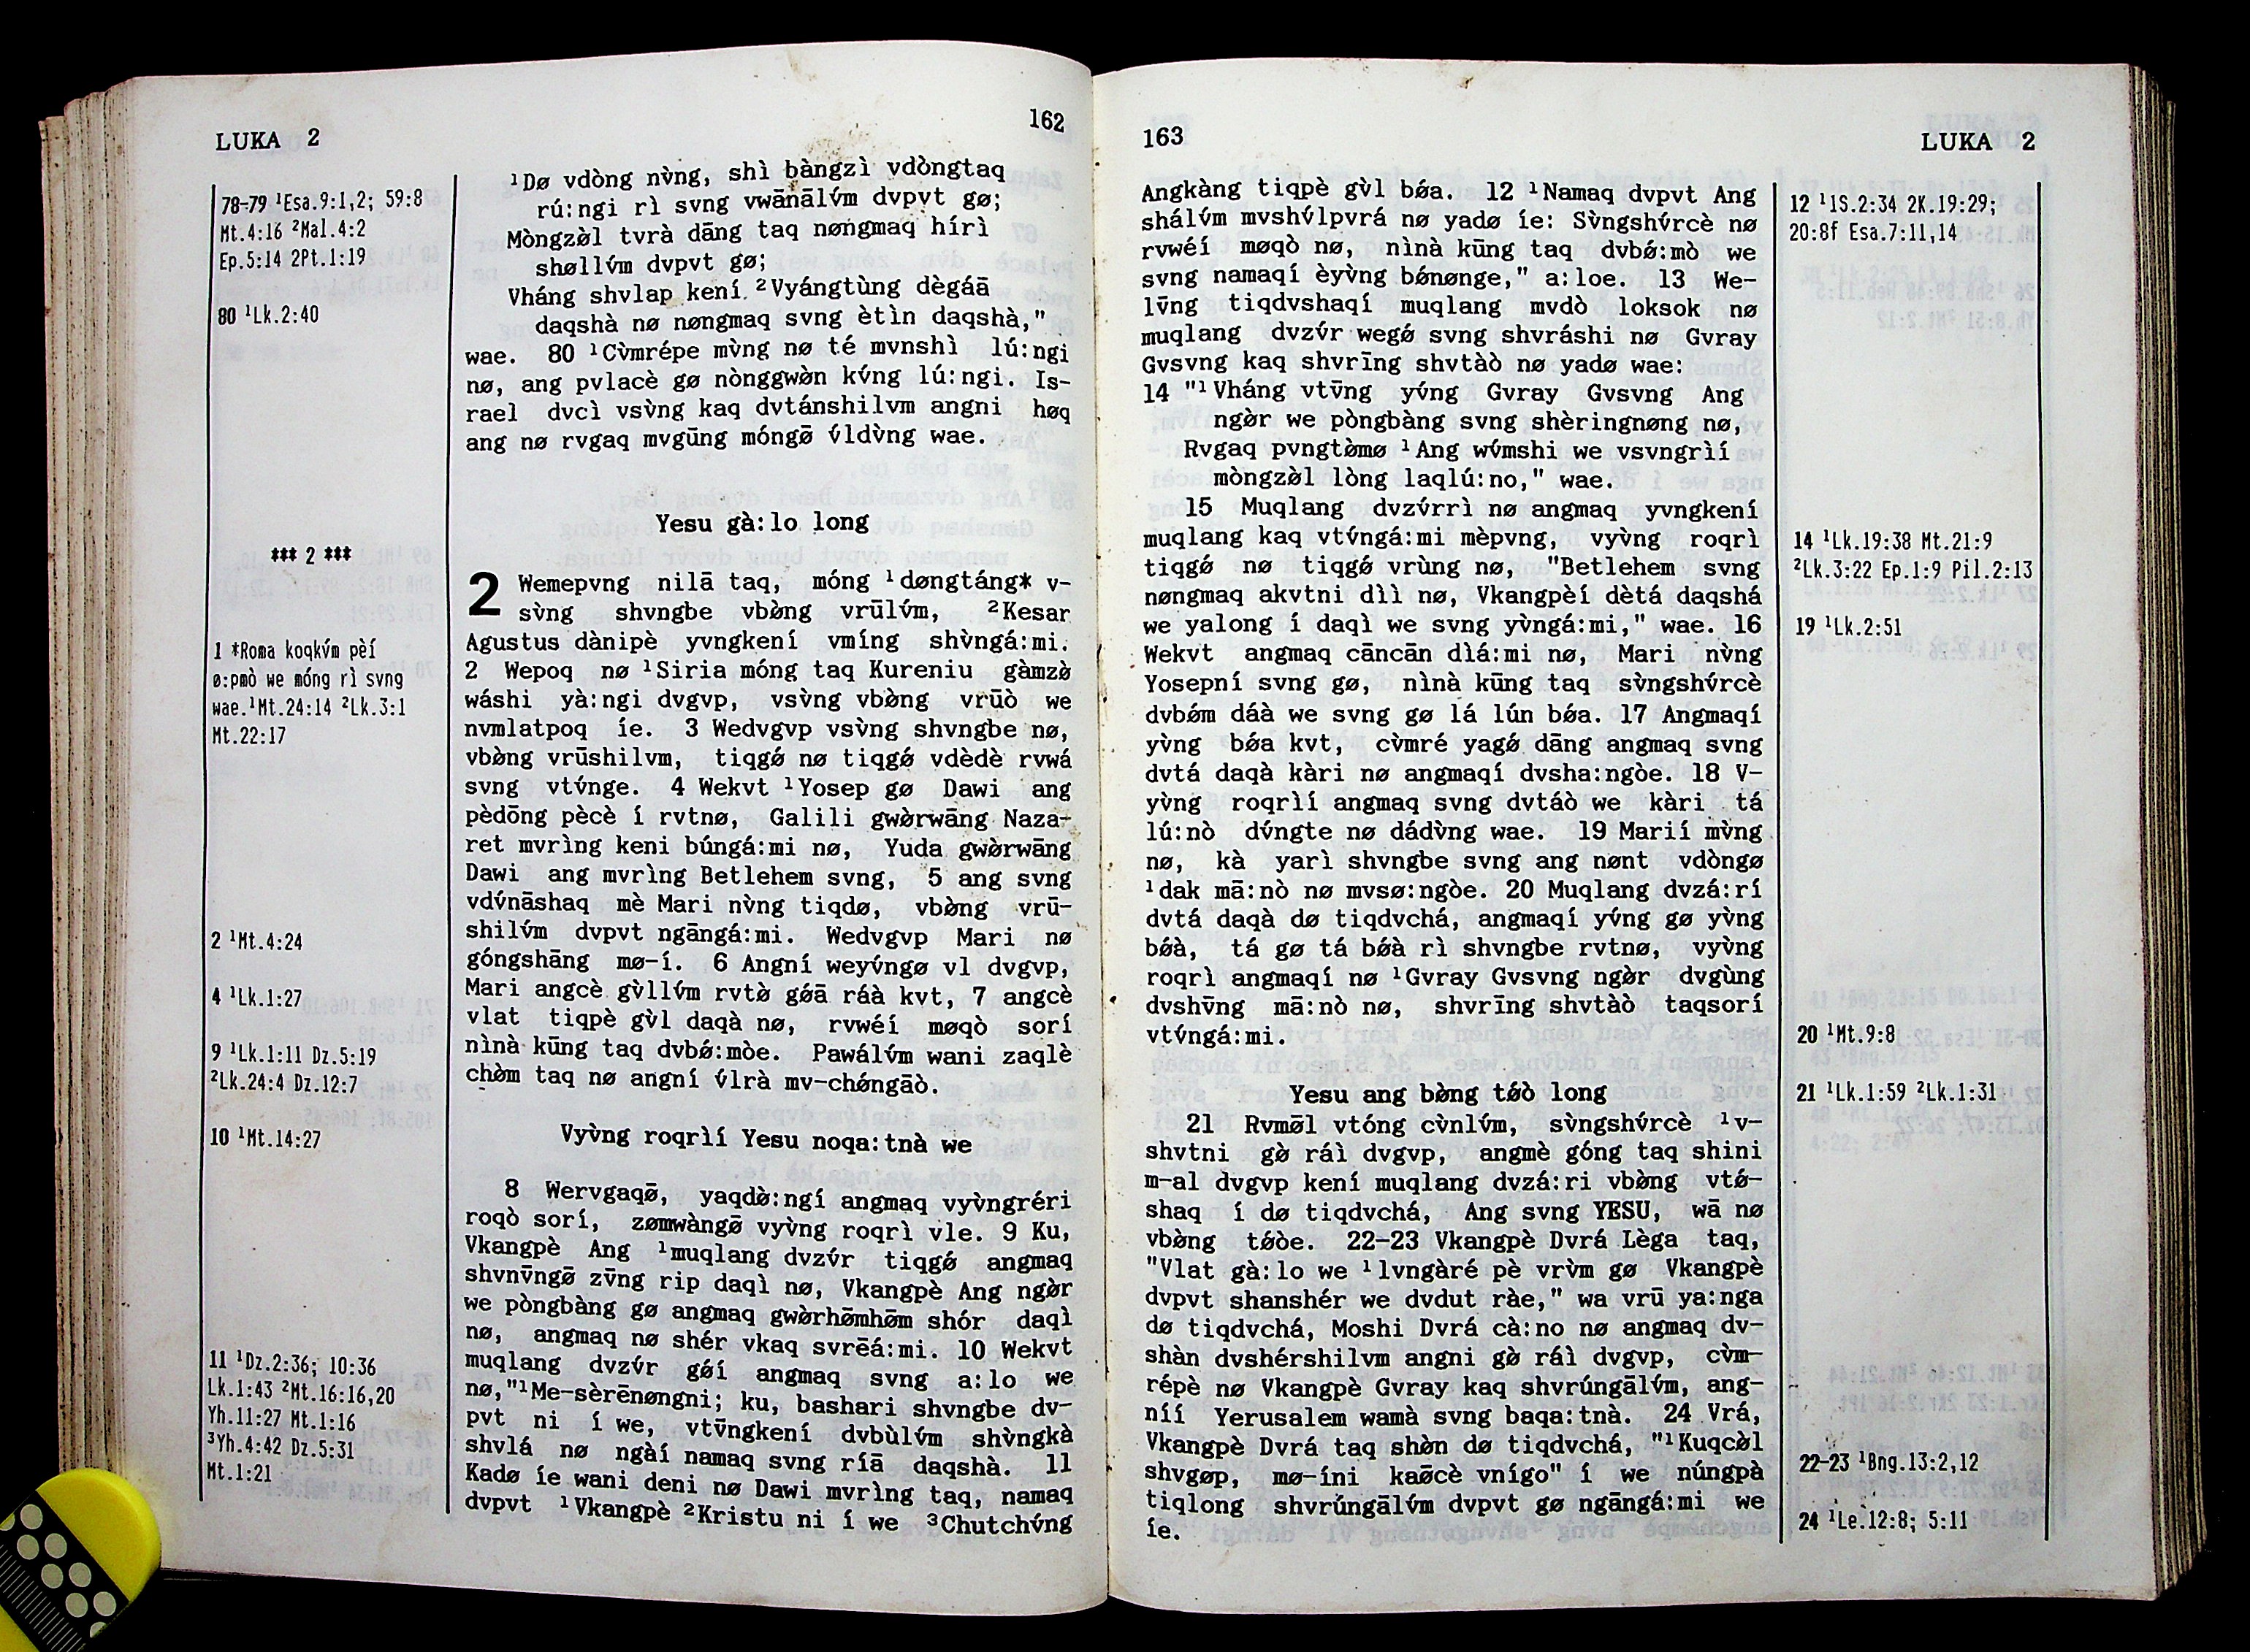 LUKA 2
162
78-79 ¹Esa.9:1,2; 59:8
Mt.4:16 ²Mal.4:2
Ep.5:14 2Pt.1:19
80 ¹Lk.2:40
*** 2 ***
1 *Roma koqkv́m pèí
ø:pmò we móng rì svng
wae.¹Mt.24:14 ²Lk.3:1
Mt.22:17
2 ¹Mt.4:24
4 ¹Lk.1:27
9 ¹Lk.1:11 Dz.5:19
²Lk.24:4 Dz.12:7
10 ¹Mt.14:27
11 ¹Dz.2:36; 10:36
Lk.1:43 ²Mt.16:16,20
Yh.11:27 Mt.1:16
³Yh.4:42 Dz.5:31
Mt.1:21
¹Dø vdòng nv̀ng, shì bàngzì vdòngtaq
rú:ngi rì svng vwānālv́m dvpvt gø;
Mòngzø̀l tvrà dāng taq nøngmaq hírì
shøllv́m dvpvt gø;
Vháng shvlap kení ²Vyángtùng dègáā
daqshà nø nøngmaq svng ètìn daqshà,"
wae. 80 ¹Cv̀mrépe mv̀ng nø té mvnshì lú:ngi
nø, ang pvlacè gø nònggwø̀n kv́ng lú:ngi. Is-
rael dvcì vsv̀ng kaq dvtánshilvm angni høq
ang nø rvgaq mvgūng móngø̄ v́ldv̀ng wae.
Yesu gà:lo long
2 Wemepvng nilā taq, móng ¹døngtáng* v-
sv̀ng shvngbe vbø̀ng vrūlv́m, ²Kesar
Agustus dànipè yvngkení vmíng shv̀ngá:mi.
2 Wepoq nø ¹Siria móng taq Kureniu gàmzø̀
wáshi yà:ngi dvgvp, vsv̀ng vbø̀ng vrūò we
nvmlatpoq íe. 3 Wedvgvp vsv̀ng shvngbe nø,
vbø̀ng vrūshilvm, tiqgǿ nø tiqgǿ vdèdè rvwá
svng vtv́nge. 4 Wekvt ¹Yosep gø Dawi ang
pèdōng pècè í rvtnø, Galili gwø̀rwāng Naza-
ret mvrìng keni búngá:mi nø, Yuda gwø̀rwāng
Dawi ang mvrìng Betlehem svng, 5 ang svng
vdv́nāshaq mè Mari nv̀ng tiqdø, vbø̀ng vrū-
shilv́m dvpvt ngāngá:mi. Wedvgvp Mari nø
góngshāng mø-í. 6 Angní weyv́ngø vl dvgvp,
Mari angcè gv̀llv́m rvtø̀ gǿā ráà kvt, 7 angcè
vlat tiqpè gv̀l daqà nø, rvwéí møqò sorí
nìnà kūng taq dvbǿ:mòe. Pawálv́m wani zaqlè
chø̀m taq nø angní v́lrà mv-chǿngāò.
Vyv̀ng roqrìí Yesu noqa:tnà we
8 Wervgaqø̄, yaqdø̀:ngí angmaq vyv̀ngréri
roqò sorí, zømwàngø̄ vyv̀ng roqrì vle. 9 Ku,
Vkangpè Ang ¹muqlang dvzv́r tiqgǿ angmaq
shvnv̄ngø̄ zv̄ng rip daqì nø, Vkangpè Ang ngø̀r
we pòngbàng gø angmaq gwø̀rhø̄mhø̄m shór daqì
nø, angmaq nø shér vkaq svrēá:mi. 10 Wekvt
muqlang dvzv́r gǿí angmaq svng a:lo we
nø,"¹Me-sèrēnøngni; ku, bashari shvngbe dv-
pvt ni í we, vtv̄ngkení dvbùlv́m shv̀ngkà
shvlá nø ngàí namaq svng ríā daqshà. 11
Kadø íe wani deni nø Dawi mvrìng taq, namaq
dvpvt ¹Vkangpè ²Kristu ni í we ³Chutchv́ng
163
LUKA 2
Angkàng tiqpè gv̀l bǿa. 12 ¹Namaq dvpvt Ang
shálv́m mvshv́lpvrá nø yadø íe: Sv̀ngshv́rcè nø
rvwéí møqò nø, nìnà kūng taq dvbǿ:mò we
svng namaqí èyv̀ng bǿnønge," a:loe. 13 We-
lv̄ng tiqdvshaqí muqlang mvdò loksok nø
muqlang dvzv́r wegǿ svng shvráshi nø Gvray
Gvsvng kaq shvrīng shvtàò nø yadø wae:
14 "¹Vháng vtv̄ng yv́ng Gvray Gvsvng Ang
ngø̀r we pòngbàng svng shèringnøng nø,
Rvgaq pvngtø̀mø ¹Ang wv́mshi we vsvngrìí
mòngzø̀l lòng laqlú:no," wae.
15 Muqlang dvzv́rrì nø angmaq yvngkení
muqlang kaq vtv́ngá:mi mèpvng, vyv̀ng roqrì
tiqgǿ nø tiqgǿ vrùng nø, "Betlehem svng
nøngmaq akvtni dìì nø, Vkangpèí dètá daqshá
we yalong í daqì we svng yv̀ngá:mi," wae. 16
Wekvt angmaq cāncān dìá:mi nø, Mari nv̀ng
Yosepní svng gø, nìnà kūng taq sv̀ngshv́rcè
dvbǿm dáà we svng gø lá lún bǿa. 17 Angmaqí
yv̀ng bǿa kvt, cv̀mré yagǿ dāng angmaq svng
dvtá daqà kàri nø angmaqí dvsha:ngòe. 18 V-
yv̀ng roqrìí angmaq svng dvtáò we kàri tá
lú:nò dv́ngte nø dádv̀ng wae. 19 Marií mv̀ng
nø, kà yarì shvngbe svng ang nønt vdòngø
¹dak mā:nò nø mvsø:ngòe. 20 Muqlang dvzá:rí
dvtá daqà dø tiqdvchá, angmaqí yv́ng gø yv̀ng
bǿà, tá gø tá bǿà rì shvngbe rvtnø, vyv̀ng
roqrì angmaqí nø ¹Gvray Gvsvng ngø̀r dvgùng
dvshv̄ng mā:nò nø, shvrīng shvtàò taqsorí
vtv́ngá:mi.
Yesu ang bø̀ng tǿò long
21 Rvmø̄l vtóng cv̀nlv́m, sv̀ngshv́rcè ¹v-
shvtni gø̀ ráì dvgvp, angmè góng taq shini
m-al dvgvp kení muqlang dvzá:ri vbø̀ng vtǿ-
shaq í dø tiqdvchá, Ang svng YESU, wā nø
vbø̀ng tǿòe. 22-23 Vkangpè Dvrá Lèga taq,
"Vlat gà:lo we ¹lvngàré pè vrv̀m gø Vkangpè
dvpvt shanshér we dvdut ràe," wa vrū ya:nga
dø tiqdvchá, Moshi Dvrá cà:no nø angmaq dv-
shàn dvshérshilvm angni gø̀ ráì dvgvp, cv̀m-
répè nø Vkangpè Gvray kaq shvrúngālv́m, ang-
níí Yerusalem wamà svng baqa:tnà. 24 Vrá,
Vkangpè Dvrá taq shø̀n dø tiqdvchá, "¹Kuqcø̀l
shvgøp, mø-íni kaø̄cè vnígo" í we núngpà
tiqlong shvrúngālv́m dvpvt gø ngāngá:mi we
íe.
12 ¹1S.2:34 2K.19:29;
20:8f Esa.7:11,14
14 ¹Lk.19:38 Mt.21:9
²Lk.3:22 Ep.1:9 Pil.2:13
19 ¹Lk.2:51
20 ¹Mt.9:8
21 ¹Lk.1:59 ²Lk.1:31
22-23 ¹Bng.13:2,12
24 ¹Le.12:8; 5:11